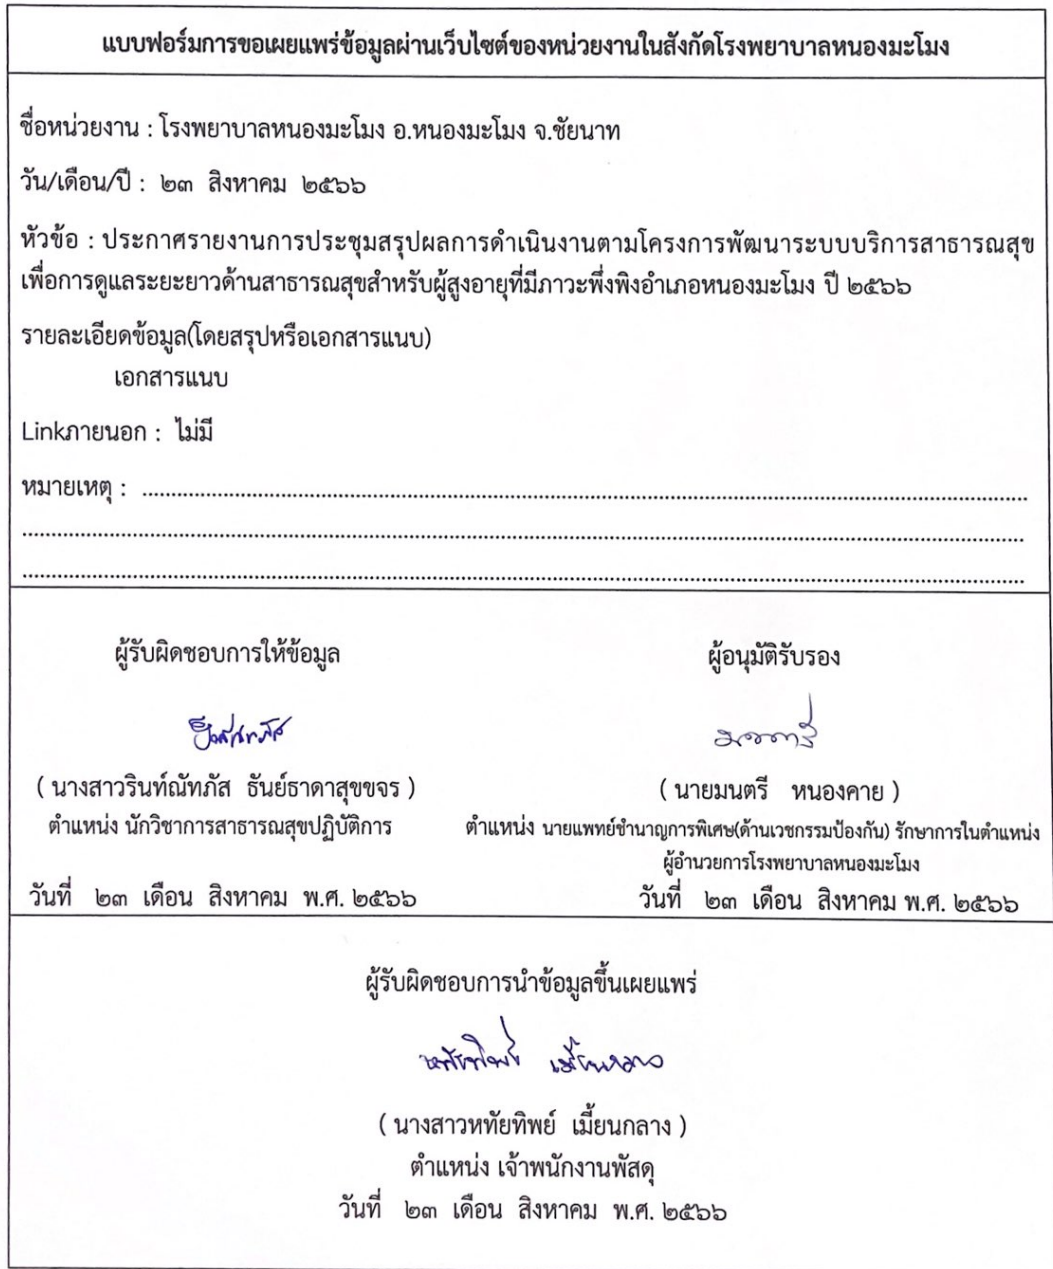 แบบฟอร์มการขอเผยแพร่ข้อมูลผ่านเว็บไซต์ของหน่วยงานในสังกัดโรงพยาบาลหนองมะโมง
ชื่อหน่วยงาน : โรงพยาบาลหนองมะโมง อ.หนองมะโมง จ.ชัยนาท
วัน/เดือน/ปี : ๒๓ สิงหาคม ๒๕๖๖
หัวข้อ : ประกาศรายงานการประชุมสรุปผลการดำเนินงานตามโครงการพัฒนาระบบบริการสาธารณสุข
เพื่อการดูแลระยะยาวด้านสาธารณสุขสำหรับผู้สูงอายุที่มีภาวะพึ่งพิงอำเภอหนองมะโมง ปี ๒๕๖๖
รายละเอียดข้อมูล(โดยสรุปหรือเอกสารแนบ)
เอกสารแนบ
Linkภายนอก : ไม่มี
หมายเหตุ :
ผู้รับผิดชอบการให้ข้อมูล
( นางสาวรินท์ณัทภัส ธันย์ธาดาสุขขจร )
ตำแหน่ง นักวิชาการสาธารณสุขปฏิบัติการ
วันที่ ๒๓ เดือน สิงหาคม พ.ศ. ๒๕๖๖
ผู้อนุมัติรับรอง
มนตรี
( นายมนตรี หนองคาย )
ตำแหน่ง นายแพทย์ชำนาญการพิเศษ(ด้านเวชกรรมป้องกัน) รักษาการในตำแหน่ง
ผู้อำนวยการโรงพยาบาลหนองมะโมง
วันที่ ๒๓ เดือน สิงหาคม พ.ศ. ๒๕๖๖
ผู้รับผิดชอบการนำข้อมูลขึ้นเผยแพร่
หทัยทิพย์ เมี้ยนกลาง
( นางสาวหทัยทิพย์ เมี้ยนกลาง )
ตำแหน่ง เจ้าพนักงานพัสดุ
วันที่ ๒๓ เดือน สิงหาคม พ.ศ. ๒๕๖๖